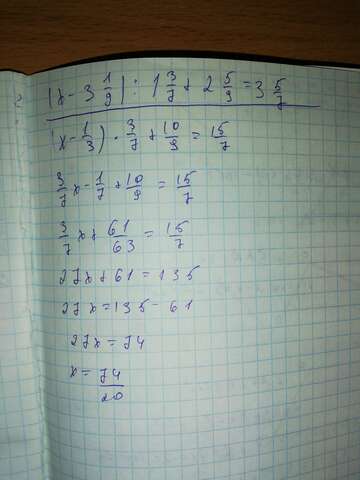 (x - 3 1/9) : 1 3/7 + 2 5/9 = 3 5/7
(x - 1/3) · 3/7 + 10/9 = 15/7
3/7 x - 1/7 + 10/9 = 15/7
3/7 x + 61/63 = 15/7
27x + 61 = 135
27x = 135 - 61
27x = 74
x = 74/20